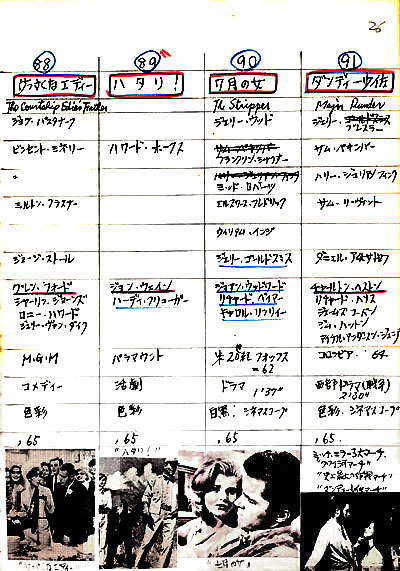 26
88
89
90
91
けっさくなエディー
ハタリ!
7月の女
ダンディー少佐
The Courtship Eddie's Father
The Stripper
Major Dundee
ジョブ・パスタナーク
ジェリー・ウォルド
ジェリー・
ブレスラー
ビンセント・ミネリー
ハワード・ホークス
フランクリン・シャフナー
サム・ペキンパー
〃
ミッド・ロバーツ
ハリー・ジュリアン・フィンク
ミルトン・クラスナー
エルスワース・フレドリック
サム・リーヴィット
ウィリアム・インジ
ジョージ・ストール
ジェリー・ゴールドスミス
ダニエル・アムフィシアトロフ
グレン・フォード
シャーリン・ジョーンズ
ロニー・ハワード
ジェリー・ヴァン・ダイク
ジョン・ウェイン
ハーディ・クリューガー
ジョアン・ウッドワード
リチャード・ベイマー
キャロル・リンリィー
チャールトン・ヘストン
リチャード・ハリス
ジェームズ・コバーン
ジム・ハットン
M.G.M
パラマウント
米20世紀フォックス
=62
コロンビア '64
コメディー
活劇
ドラマ
1'37"
西部ドラマ(戦争)
2'00"
色彩
色彩
白黒:シネマスコープ
色彩.シネマスコープ
, 65
, 65
, 65
, 65.
"ハタリ!"
"七月の女"